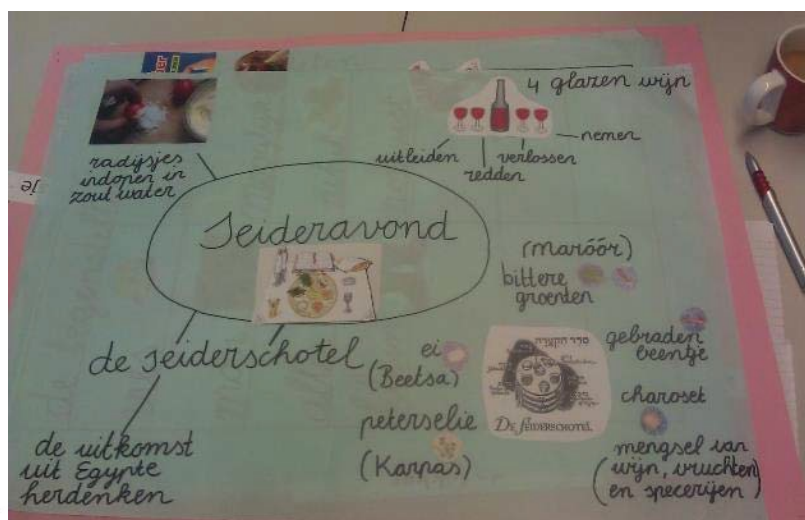 4 glazen wijn
nemen
verlossen
redden
uitleiden
radijsjes
indopen in
zout water
Seideravond
(maróór)
bittere
groenten
de seiderschotel
ei
(Beetsa)
gebraden
beentje
charoset
peterselie
(Karpas)
DE SEIDERSCHOTEL
mengsel van
(wijn, vruchten)
en specerijen)
de uitkomst
uit Egypte
herdenken